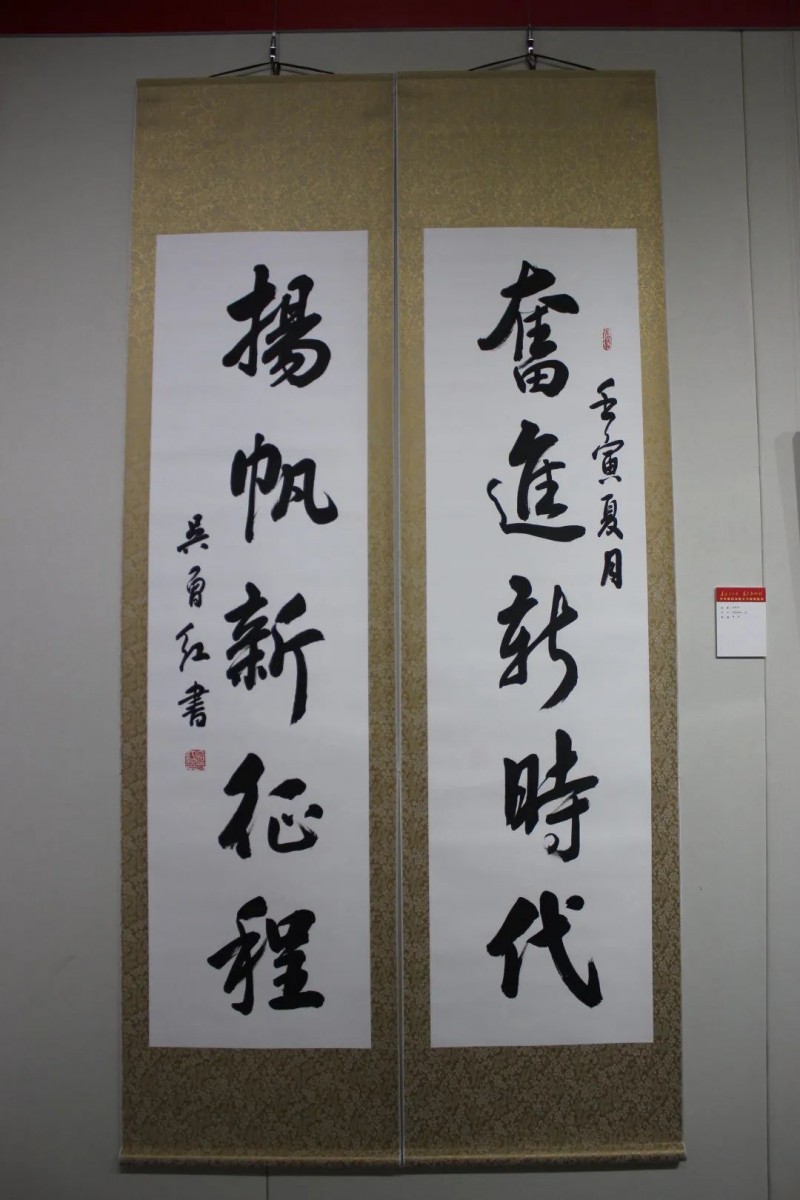 壬寅夏月
奮進新時代
揚帆新征程
吳勇紅書